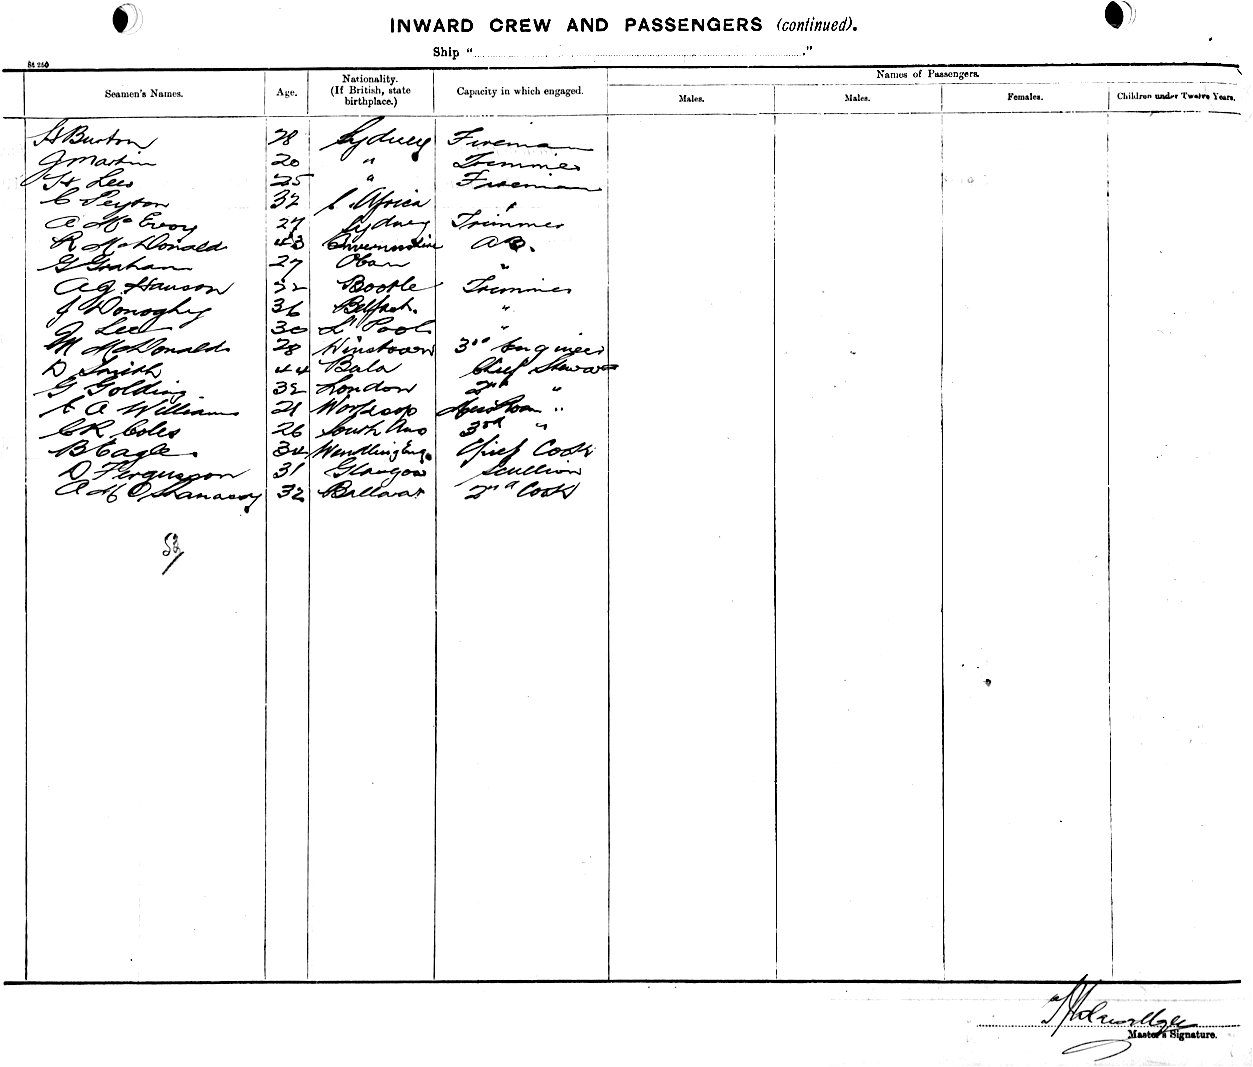 INWARD CREW AND PASSENGERS (continued).
Ship " ."
St 250
Seamen's Names. Age. Nationality. (If British, state birthplace.) Capacity in which engaged. Names of Passengers.
Males. Males. Females. Children under Twelve Years.
H Burton 28 Sydney Fireman
J Martin 20 " Trimmer
H Lees 25 " Fireman
C Peyton 32 S. Africa "
A McEvoy 27 Sydney Trimmer
R McDonald 43 AB.
G Graham 27 Oban "
A J Hanson 32 Bootle Trimmer
J Donoghy 36 Belfast. "
J Lee 30 L'Pool "
M McDonald 28 3rd Engineer
D Smith 44 Bala Chief Steward
G Golding 32 London 2nd "
C A Williams 21 Worksop "
C R Coles 26 South Aus 3rd "
B Eagle 34 Wendling Eng. Chief Cook
D Fergusson 31 Glasgow Scullion
A McOShanassy 32 Ballarat 2nd Cook
52
Master's Signature.